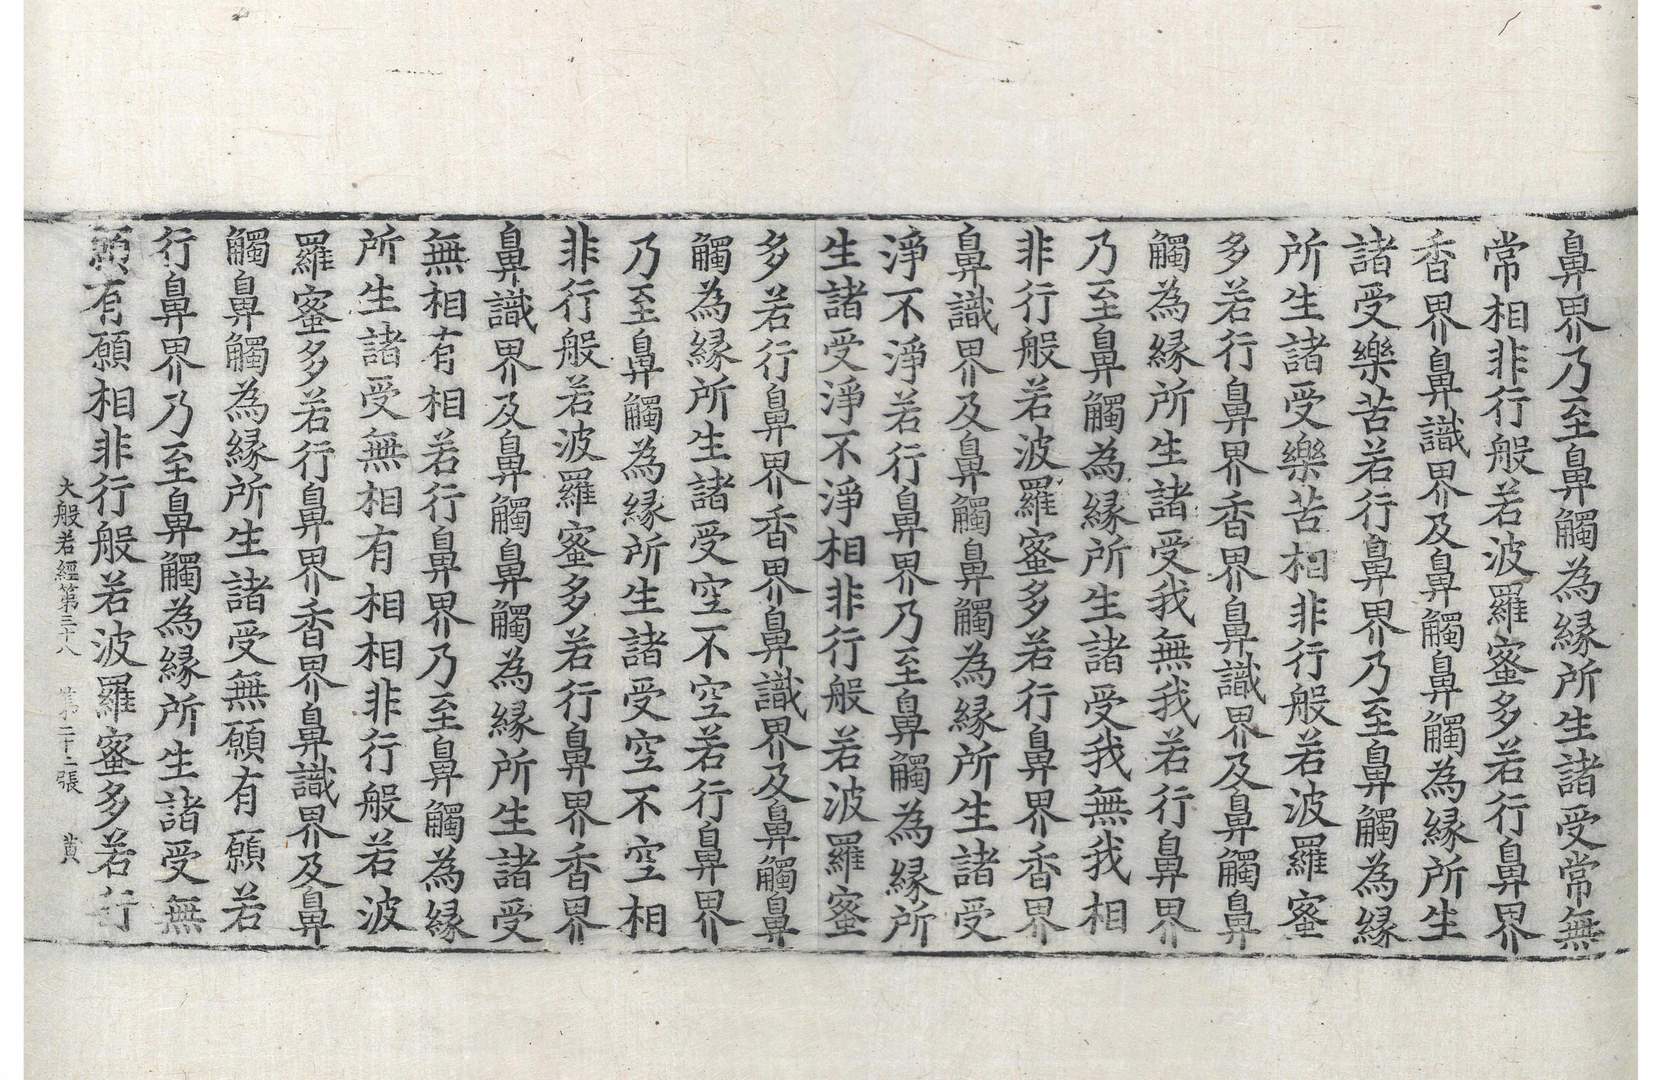 鼻界乃至鼻觸為縁所生諸受常無
常相非行般若波羅蜜多若行鼻界
香界鼻識界及鼻觸鼻觸為縁所生
諸受樂苦若行鼻界乃至鼻觸為縁
所生諸受樂苦相非行般若波羅蜜
多若行鼻界香界鼻識界及鼻觸鼻
觸為縁所生諸受我無我若行鼻界
乃至鼻觸為縁所生諸受我無我相
非行般若波羅蜜多若行鼻界香界
鼻識界及鼻觸鼻觸為縁所生諸受
淨不淨若行鼻界乃至鼻觸為縁所
生諸受淨不淨相非行般若波羅蜜
多若行鼻界香界鼻識界及鼻觸鼻
觸為縁所生諸受空不空若行鼻界
乃至鼻觸為縁所生諸受空不空相
非行般若波羅蜜多若行鼻界香界
鼻識界及鼻觸鼻觸為縁所生諸受
無相有相若行鼻界乃至鼻觸為縁
所生諸受無相有相相非行般若波
羅蜜多若行鼻界香界鼻識界及鼻
觸鼻觸為縁所生諸受無願有願若
行鼻界乃至鼻觸為縁所生諸受無
願有願相非行般若波羅蜜多若行
大般若經第三十八 第二十二張 黄